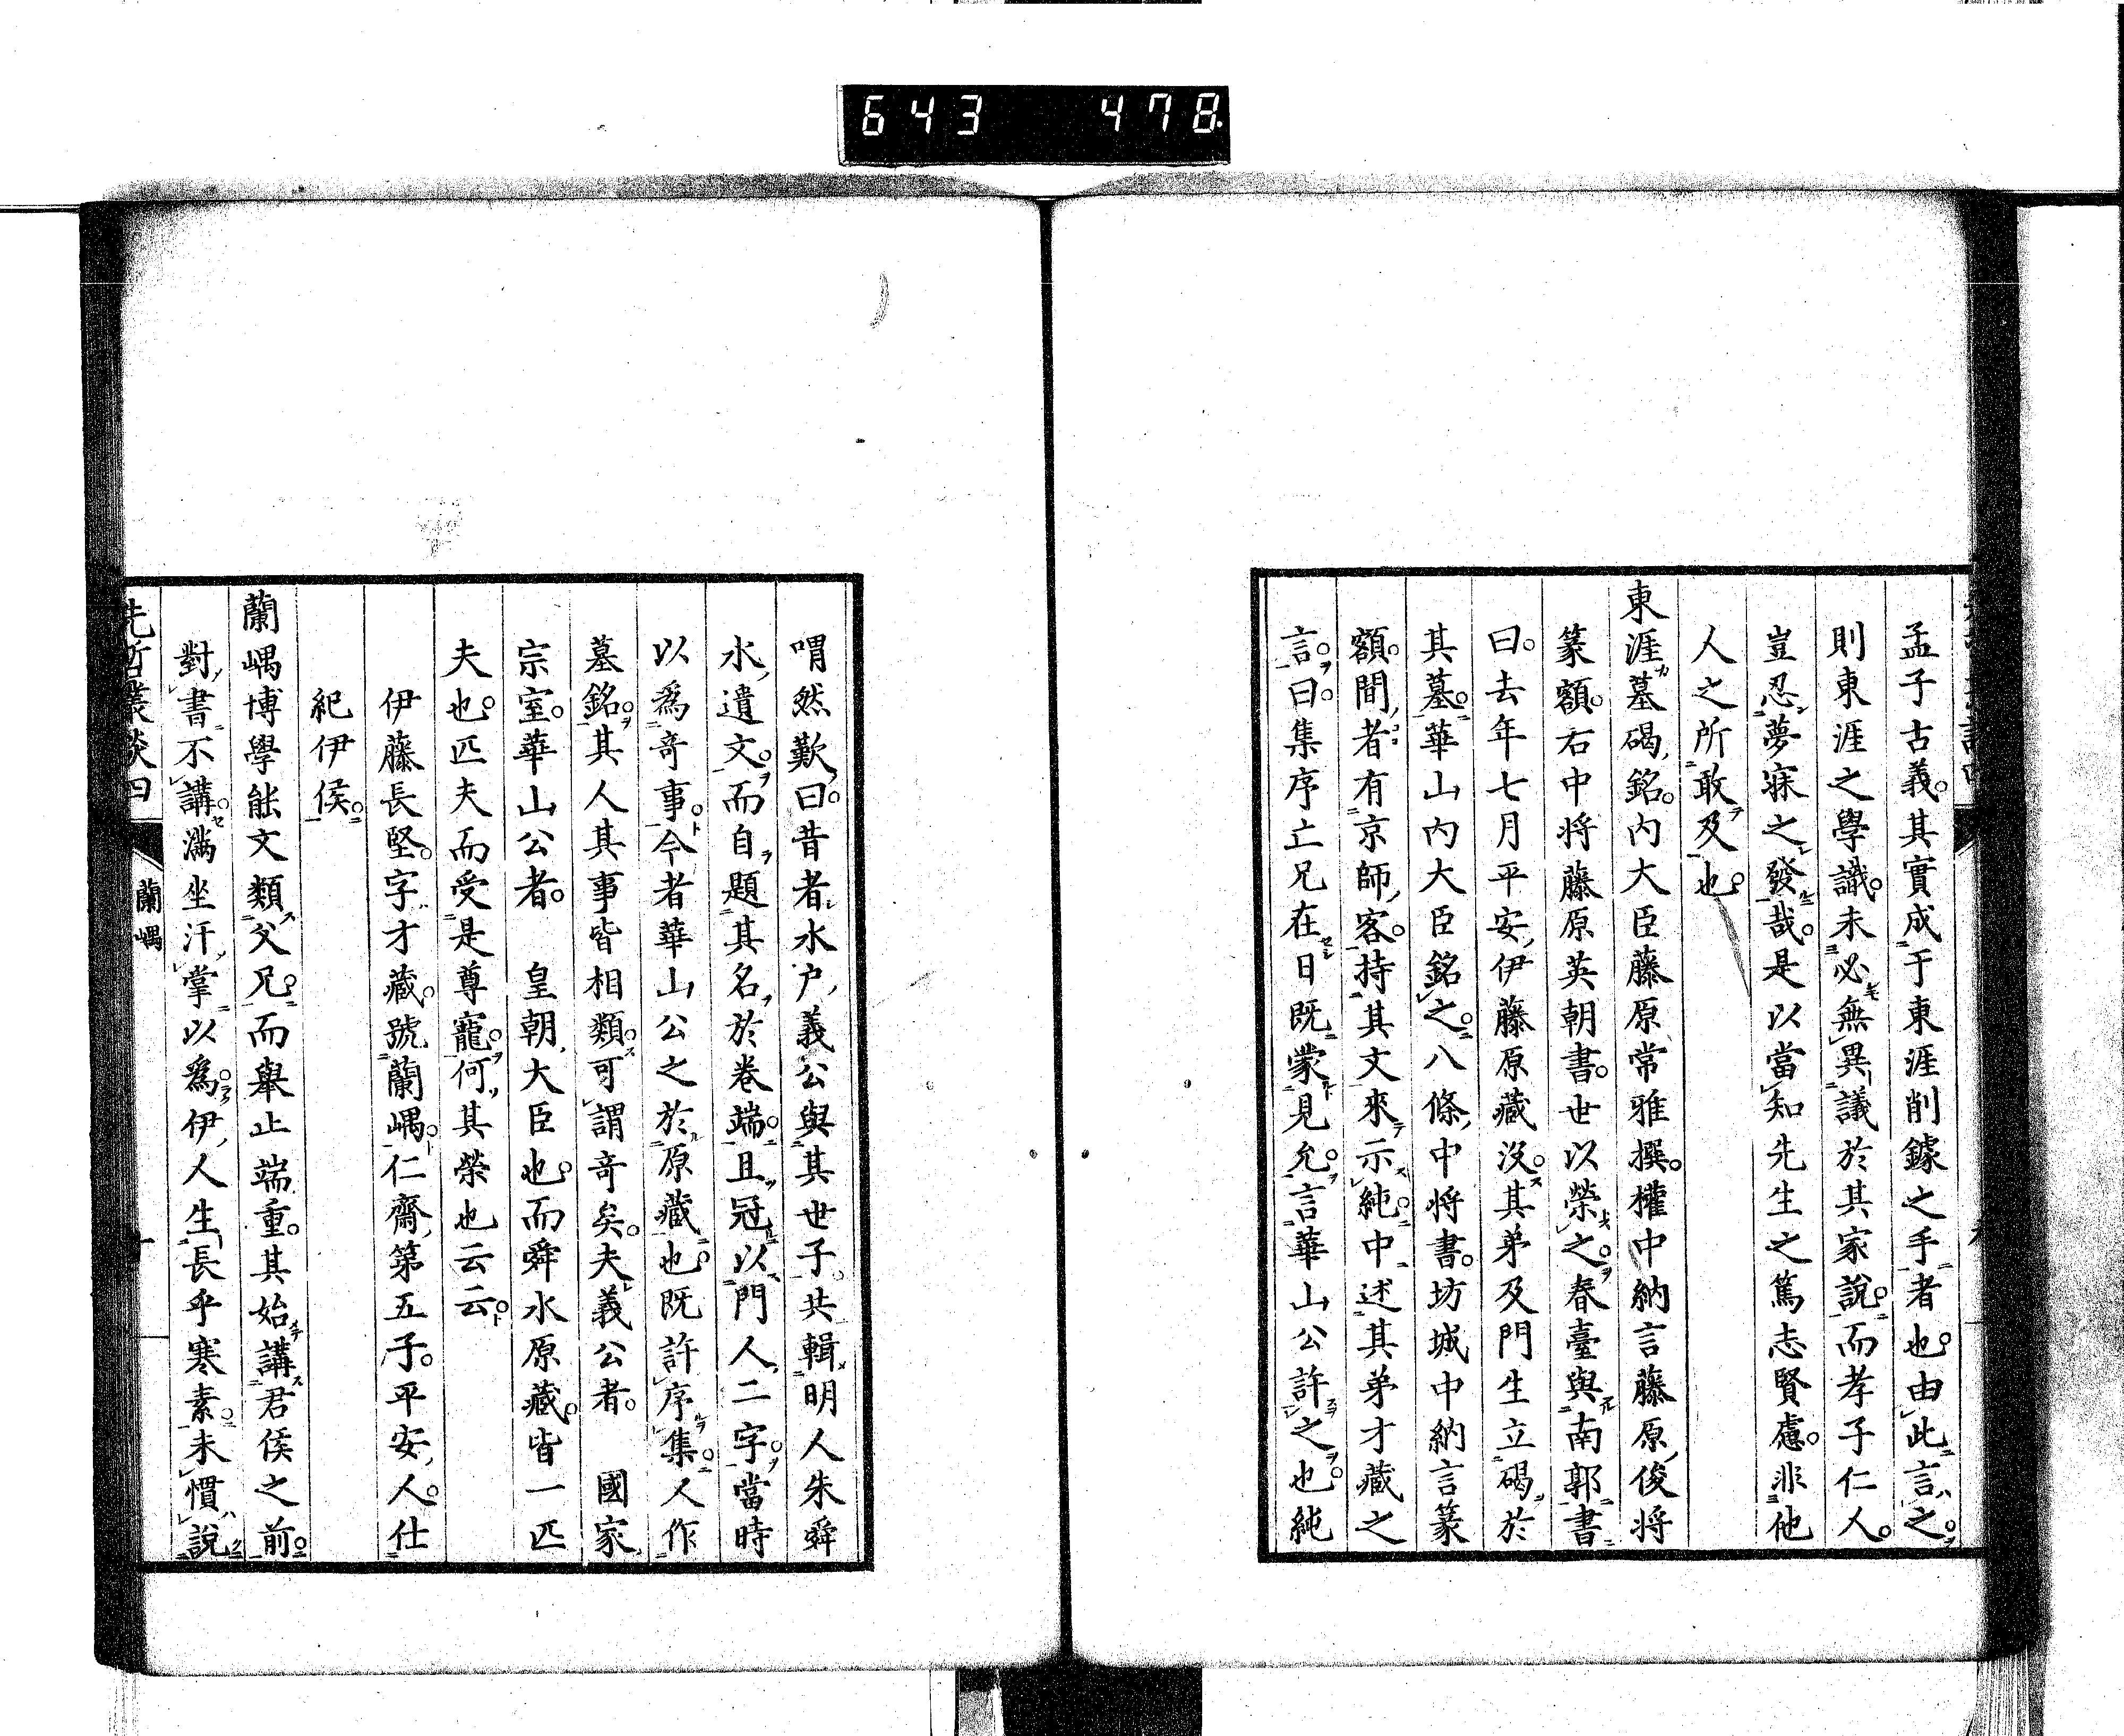 643 478.
孟子古義。其實成于東涯削鐻之手者也。由此言之。
則東涯之學識。未必無異議於其家說。而孝子仁人。
豈忍夢寐之發哉。是以當知先生之篤志賢慮。非他
人之所敢及也。
東涯墓碣銘。內大臣藤原常雅撰。權中納言藤原俊將
篆額。右中将藤原英朝書。世以榮之。春臺與南郭書
曰。去年七月平安伊藤原藏沒。其弟及門生立碣於
其墓。華山內大臣銘之。八條中将書。坊城中納言篆
額。間者有京師客。持其文來示純。中述其弟才藏之
言。曰。集序亡兄在日既蒙見允。言華山公許之也。純
喟然歎曰。昔者水户義公與其世子。共輯明人朱舜
水遺文。而自題其名於卷端。且冠以門人二字。當時
以爲奇事。今者華山公之於原藏也。既許序集。人作
墓銘。其人其事皆相類。可謂奇矣。夫義公者。 國家
宗室。華山公者。 皇朝大臣也。而舜水原藏。皆一匹
夫也。匹夫而受是尊寵。何其榮也云云。
伊藤長堅。字才藏。號蘭嵎。仁齋第五子。平安人。仕
紀伊侯。
蘭嵎博學能文類父兄。而舉止端重。其始講君侯之前。
對書不講。滿坐汗掌以爲。伊人生長乎寒素。未慣說
先哲叢談四
蘭嵎